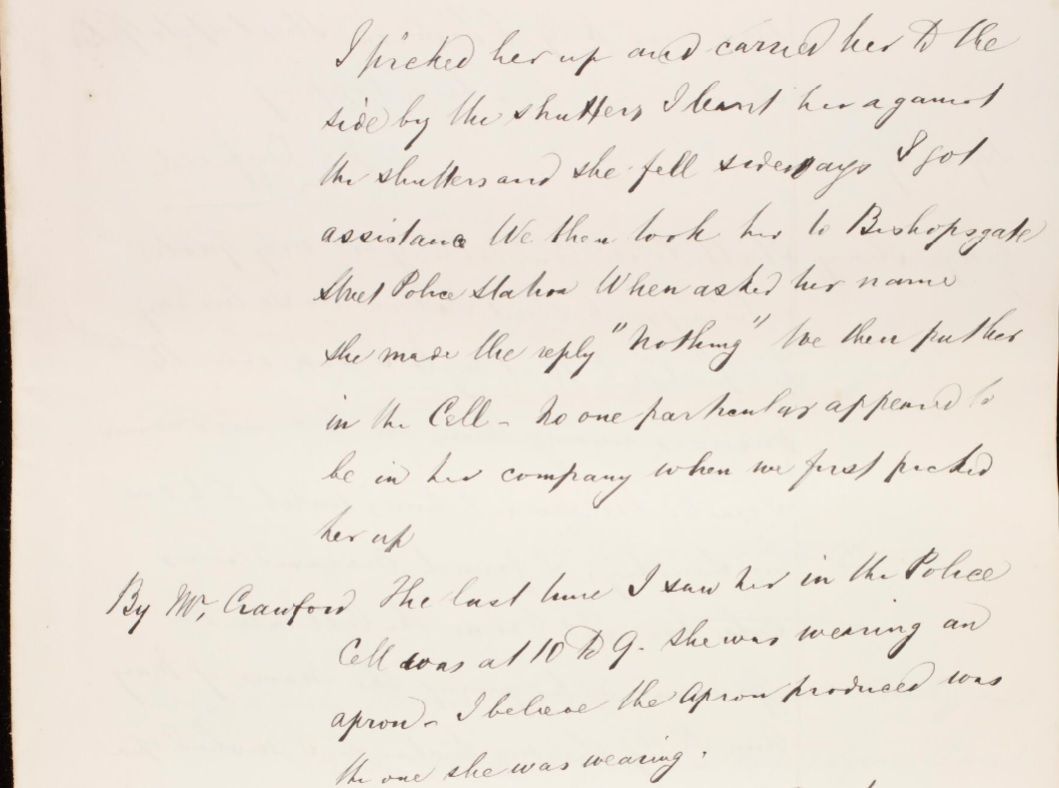 I picked her up and carried her to the
side by the shutters I leant her against
the shutters and she fell sideways I got
assistance We then took her to Bishopsgate
Street Police Station When asked her name
she made the reply "Nothing" We then put her
in the Cell - No one particular appeared to
be in her company when we first picked
her up
By Mr, Crawford The last time I saw her in the Police
Cell was at 10 to 9. She was wearing an
apron - I believe the Apron produced was
the one she was wearing.